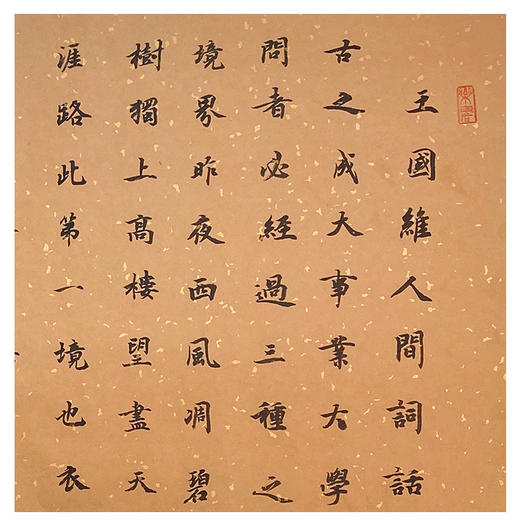 王國維人間詞話
古之成大事業大學
問者必經過三種之
境界昨夜西風凋碧
樹獨上高樓望盡天
涯路此第一境也衣